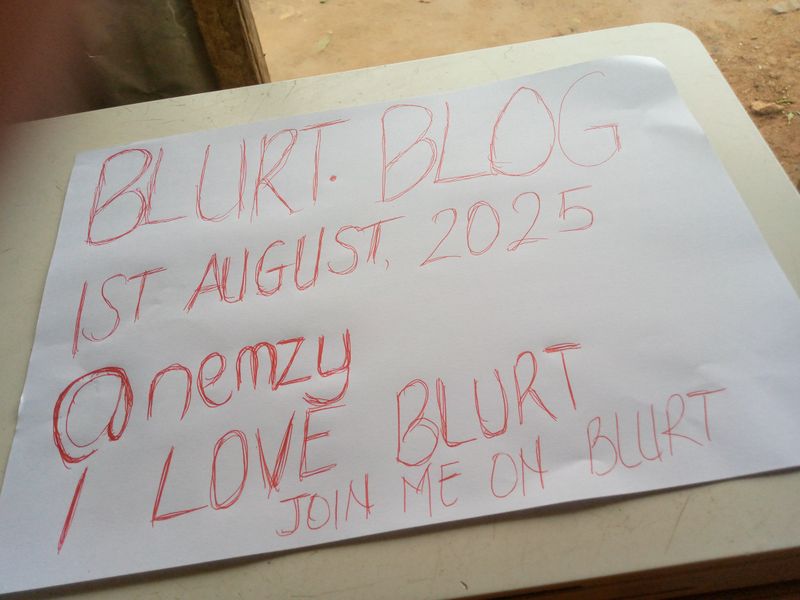 BLURT. BLOG
1ST AUGUST, 2025
@nemzy
I LOVE BLURT
JOIN ME ON BLURT